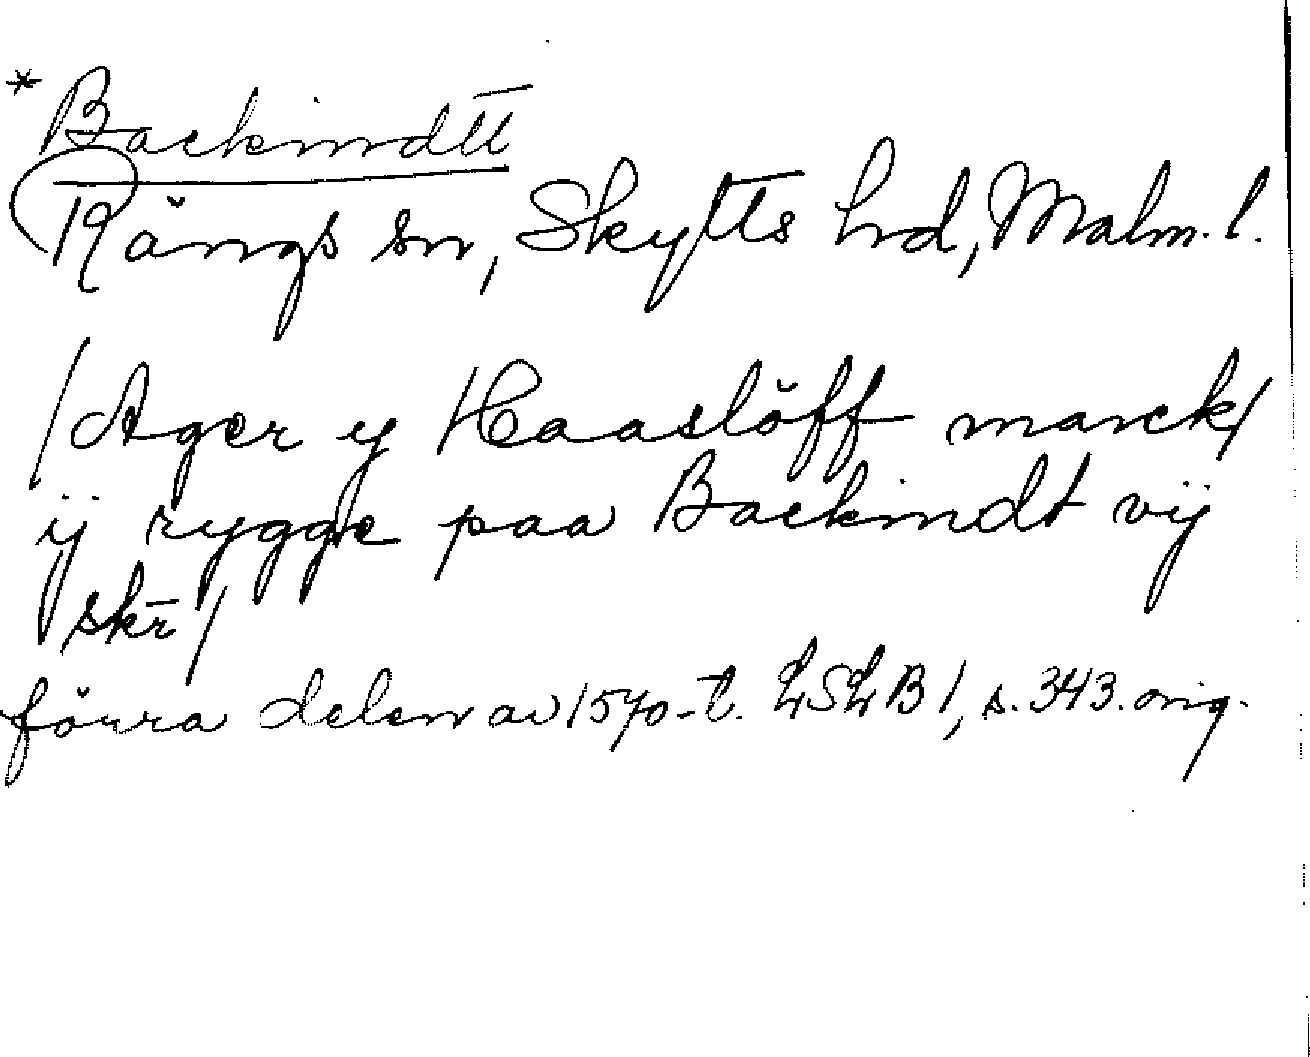 * Backindtt
Rängs sn, Skytts hd, Malm. l.
/Ager y Haaslöff marck/
ij rygge paa Backindt vij
skr̄/
förra delen av 1570-t. LSLB 1, s. 343. orig.